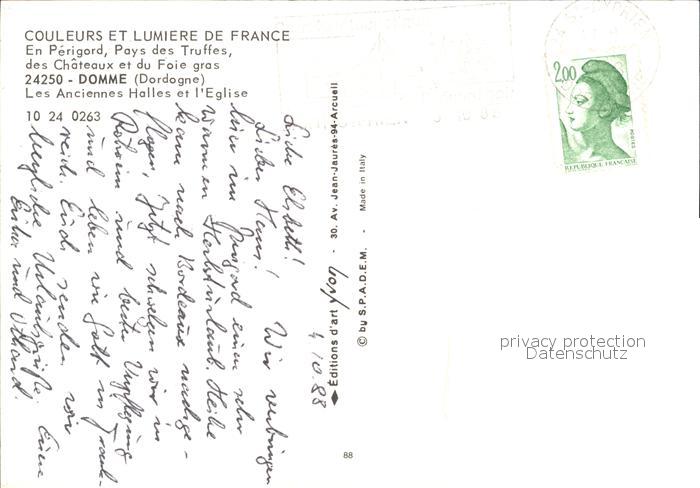 COULEURS ET LUMIERE DE FRANCE
En Périgord, Pays des Truffes,
des Châteaux et du Foie gras
24250 - DOMME (Dordogne)
Les Anciennes Halles et l'Eglise
10 24 0263
4.10.88
Liebe Elsbeth!
Lieber Hans! Wir verbringen
hier im Périgord einen sehr
warmen Herbsturlaub. Heike
kam nach Bordeaux nachge-
flogen. Jetzt schwelgen wir in
Rotwein und bester Verpflegung
und leben wie Gott in Frank-
reich. Euch senden wir
herzliche Urlaubsgrüße. Eure
und
Editions d'art - 30. Av. Jean-Jaurès-94-Arcueil
© by S.P.A.D.E.M. - Made in Italy
88
2,00
REPUBLIQUE FRANÇAISE
privacy protection
Datenschutz